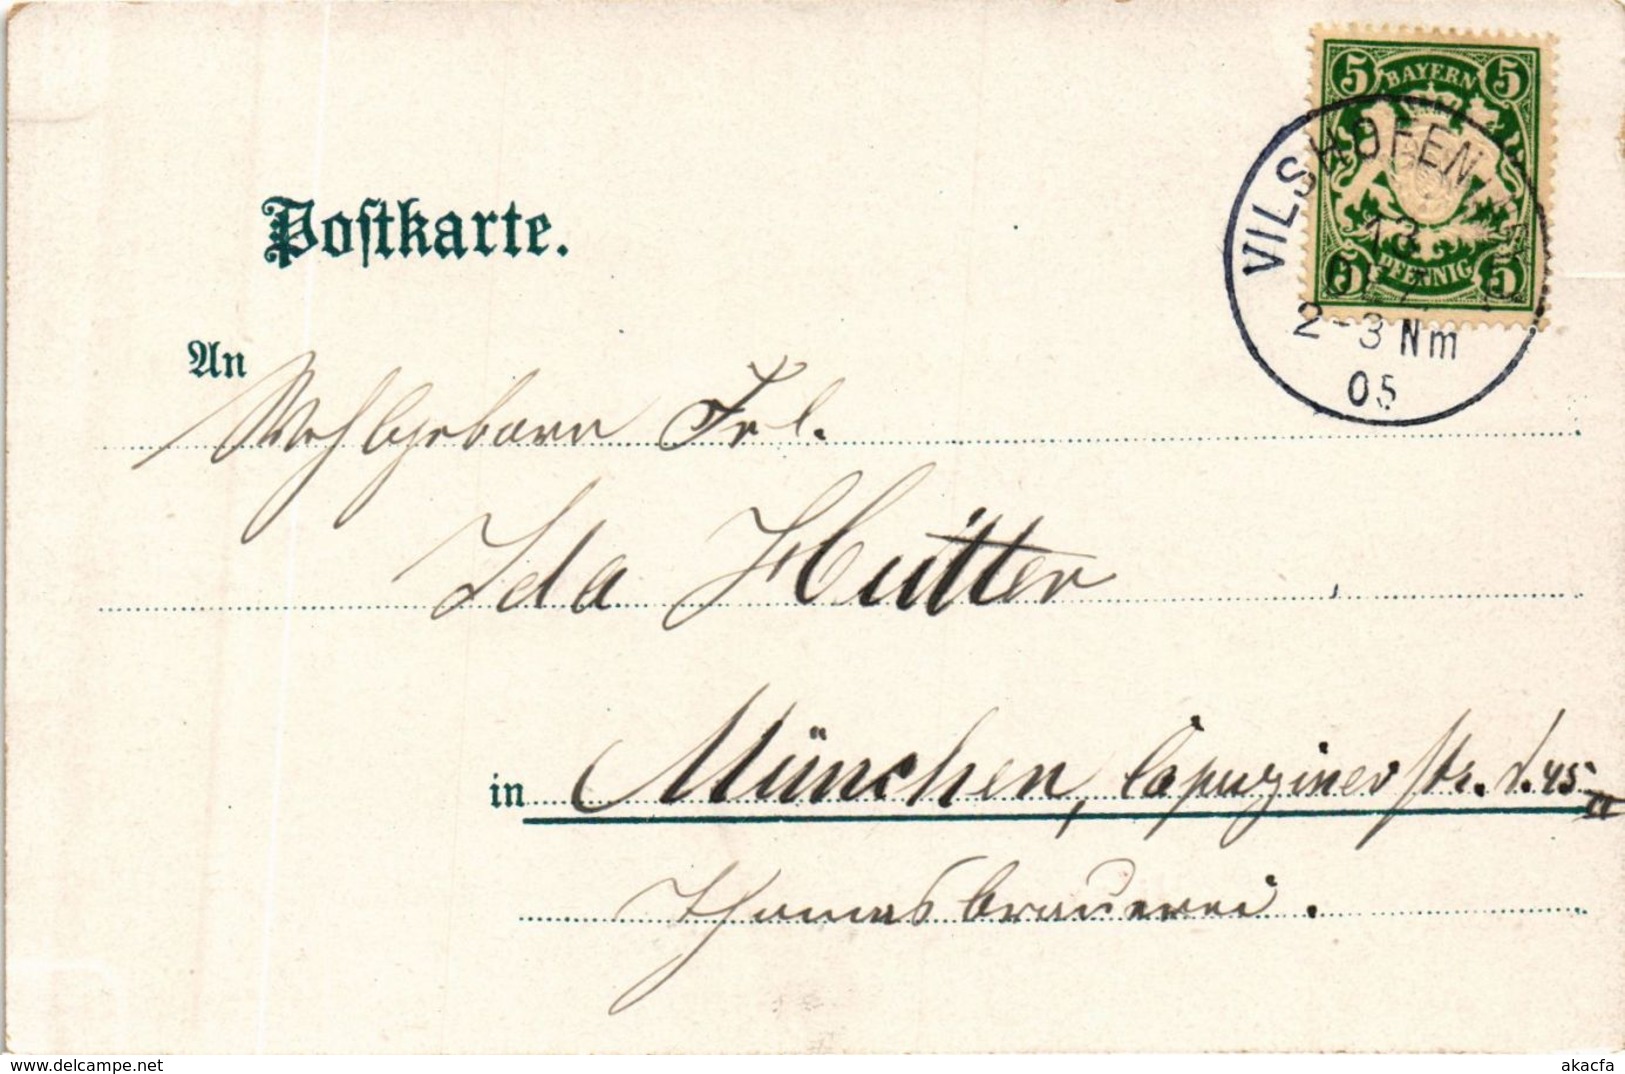 BAYERN
5 5
5 5
PFENNIG
VILSHOFEN
13
2-3 Nm
05
Postkarte.
An
Wohlgeborn Frl.
Ida Hutter
in München, Capuzinerstr. 45 II
Thomasbrauerei.
akacfa
delcampe.net